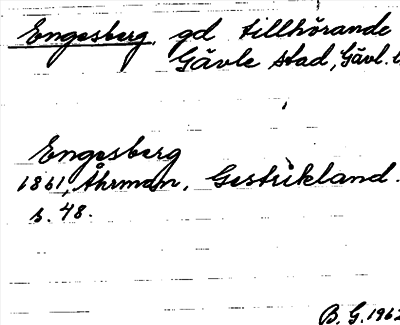 Engesberg, gd tillhörande
Gävle stad, Gävl.
Engesberg
1861, Åhrman, Gestrikland.
s. 48.
B. G. 1962